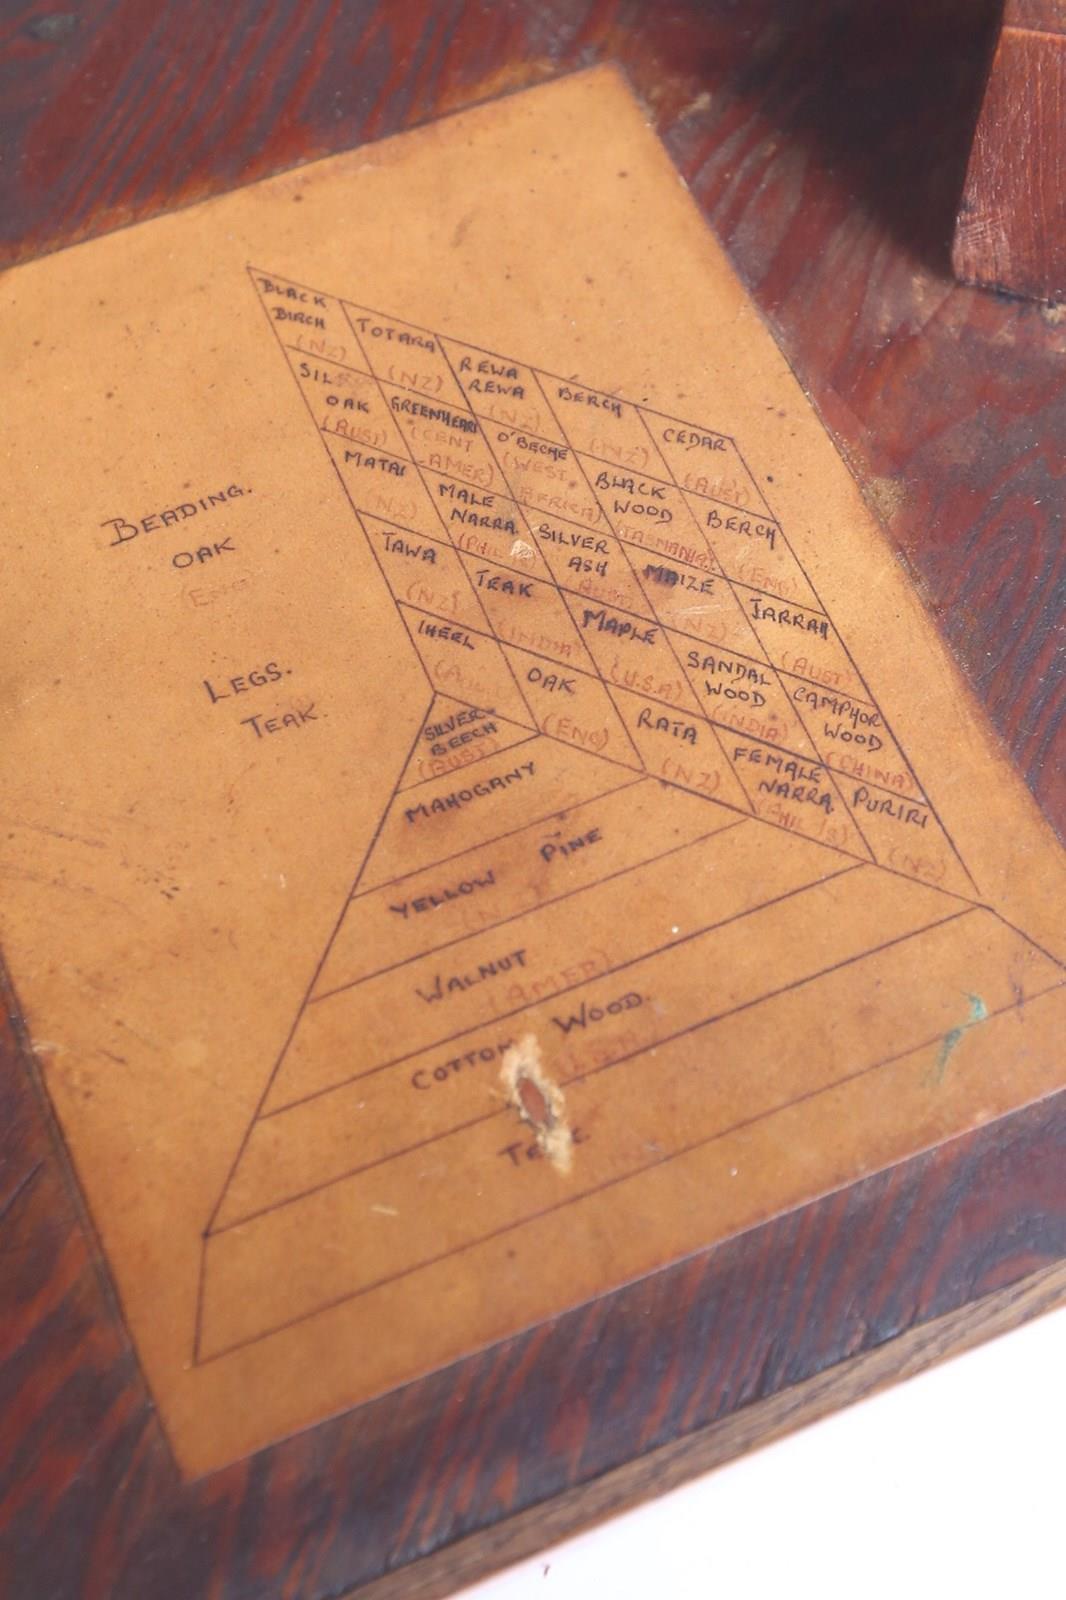 BLACK
BIRCH
(NZ)
TOTARA
(NZ)
REWA
REWA
(NZ)
BERCH
(NZ)
CEDAR
(AUST)
OAK
(AUST)
GREENHEART
(CENT
AMER)
O'BECHE
(WEST
AFRICA)
BLACK
WOOD
(TASMANIA)
BERCH
(ENG)
MATAI
(NZ)
MALE
NARRA
SILVER
ASH
AUST
MAIZE
(NZ)
JARRAH
(AUST)
TAWA
(NZ)
TEAK
(INDIA)
MAPLE
(U.S.A)
SANDAL
WOOD
(INDIA)
CAMPHOR
WOOD
(CHINA)
IHEEL
OAK
(ENG)
RATA
(NZ)
FEMALE
NARRA
PURIRI
(NZ)
BEADING.
OAK
LEGS.
TEAK.
SILVER
BEECH
(AUST)
MAHOGANY
YELLOW PINE
WALNUT
(AMER)
COTTON WOOD.